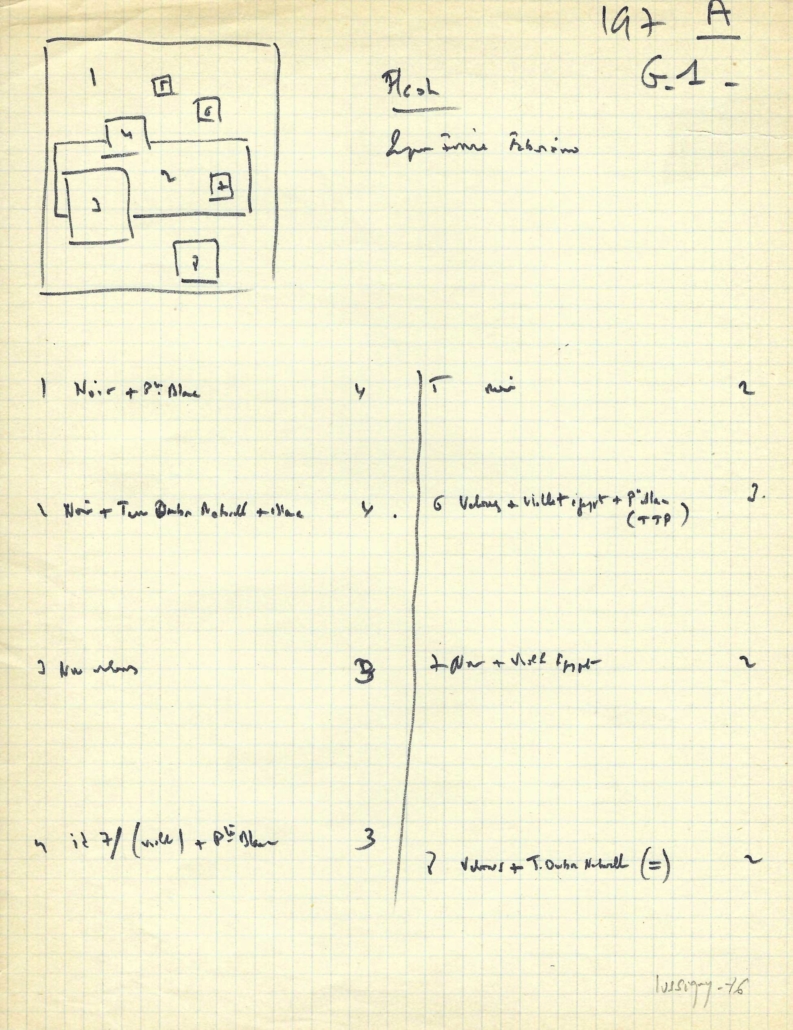 197 A
G.1 -
1
5
6
4
2
7
3
8
1 Noir + Pte Blanc 4
Noir + Terre Ombre Naturelle + Blanc 4.
3 Noir velours 3
4 id 7/ (violet) + Pte Blanc 3
5 noir 2
6 Velours + Violet égypt + Pte Blanc 3.
(TTP)
7 Noir + Violet Egypt 2
8 Velours + T. Ombre Naturelle (=) 2
lussigny-76